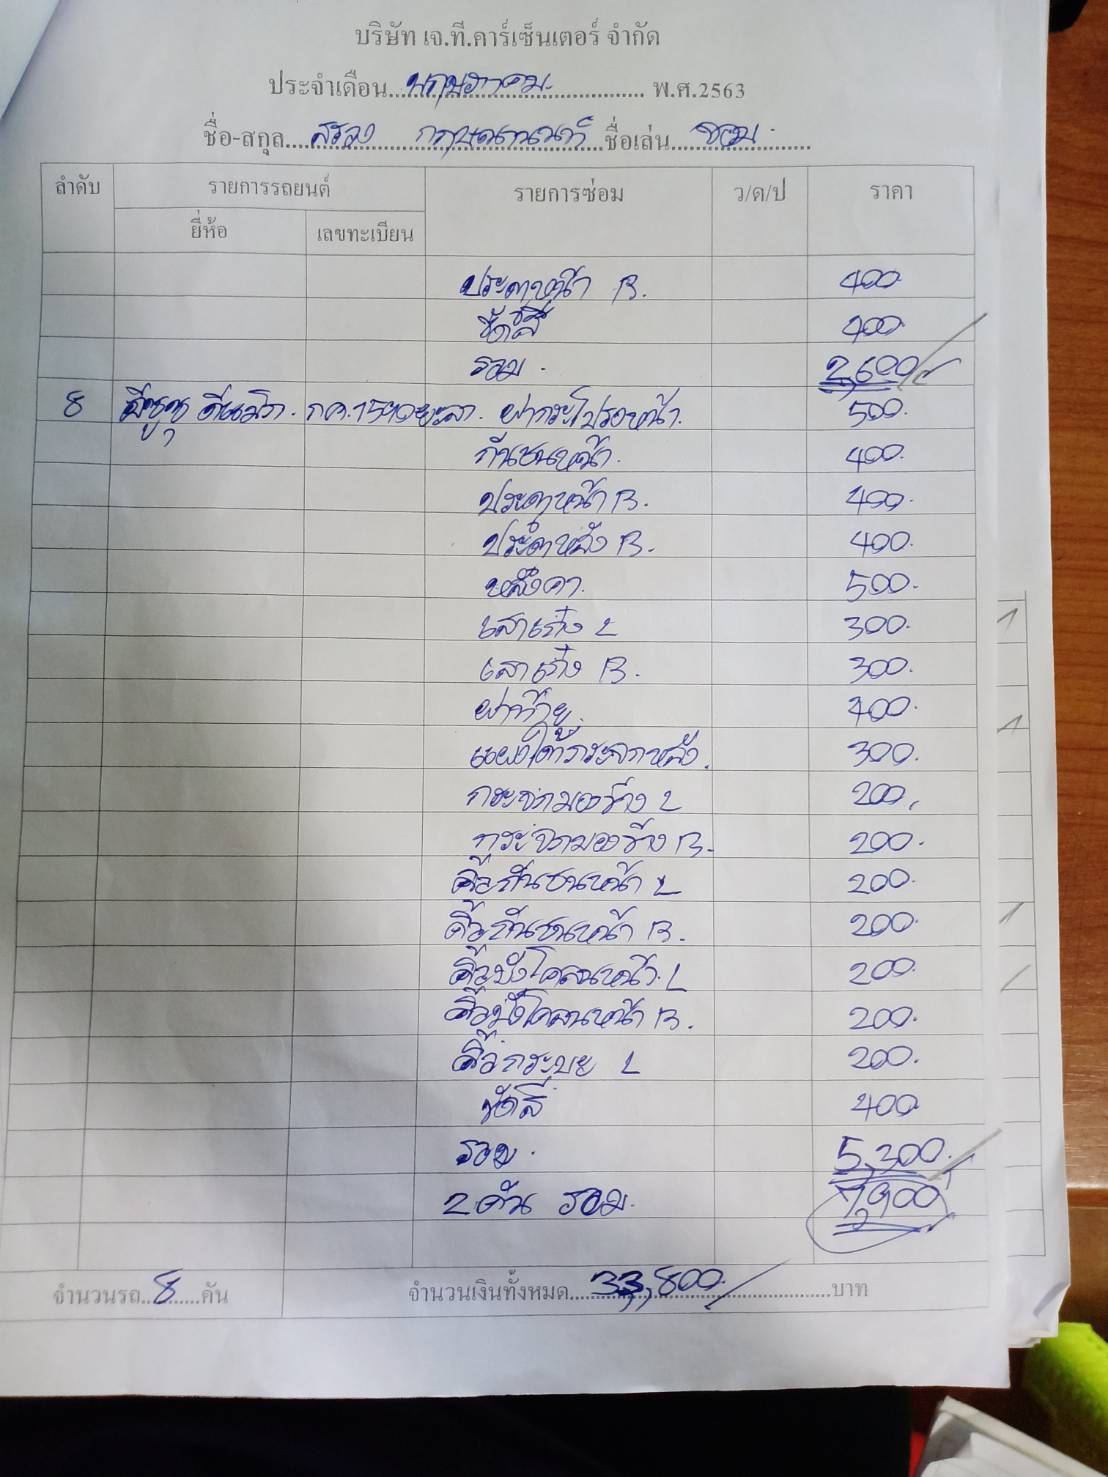 บริษัท เจ.ที.คาร์เซ็นเตอร์ จำกัด
ประจำเดือน....พฤษภาคม.... พ.ศ.2563
ชื่อ-สกุล.... ....ชื่อเล่น....
ลำดับ รายการรถยนต์ รายการซ่อม ว/ด/ป ราคา
ยี่ห้อ เลขทะเบียน
ประตูหน้า R. 400.
ขัดสี 400.
รวม. 2,600
8 อีซูซุ ดีแมก. กค.1590ยะลา. ฝากระโปรงหน้า. 500.
กันชนหน้า. 400.
ประตูหน้า R. 400.
ประตูหลัง R. 400.
หลังคา. 500.
เสาเก๋ง L 300.
เสาเก๋ง R. 300.
ฝาท้าย. 400.
แผงใต้กระจกหลัง. 300.
กระจกมองข้าง L 200.
กระจกมองข้าง R. 200.
คิ้วกันชนหน้า L 200.
คิ้วกันชนหน้า R. 200.
คิ้วบังโคลนหน้า. L 200.
คิ้วบังโคลนหน้า R. 200.
คิ้วกระบะ L 200.
ขัดสี 400
รวม. 5,300.
2 คัน รวม. 7,900
จำนวนรถ..8....คัน จำนวนเงินทั้งหมด....33,800.....บาท